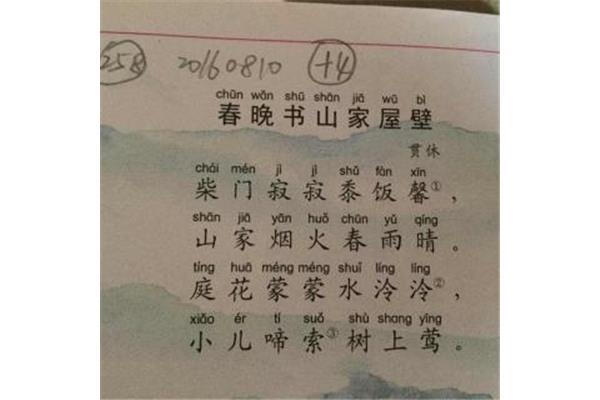 258 20160810 +4
chūn wǎn shū shān jiā wū bì
春晚书山家屋壁
贯休
chái mén jì jì shǔ fàn xīn
柴门寂寂黍饭馨①，
shān jiā yān huǒ chūn yǔ qíng
山家烟火春雨晴。
tíng huā méng méng shuǐ líng líng
庭花蒙蒙水泠泠②，
xiǎo ér tí suǒ shù shang yīng
小儿啼索③树上莺。